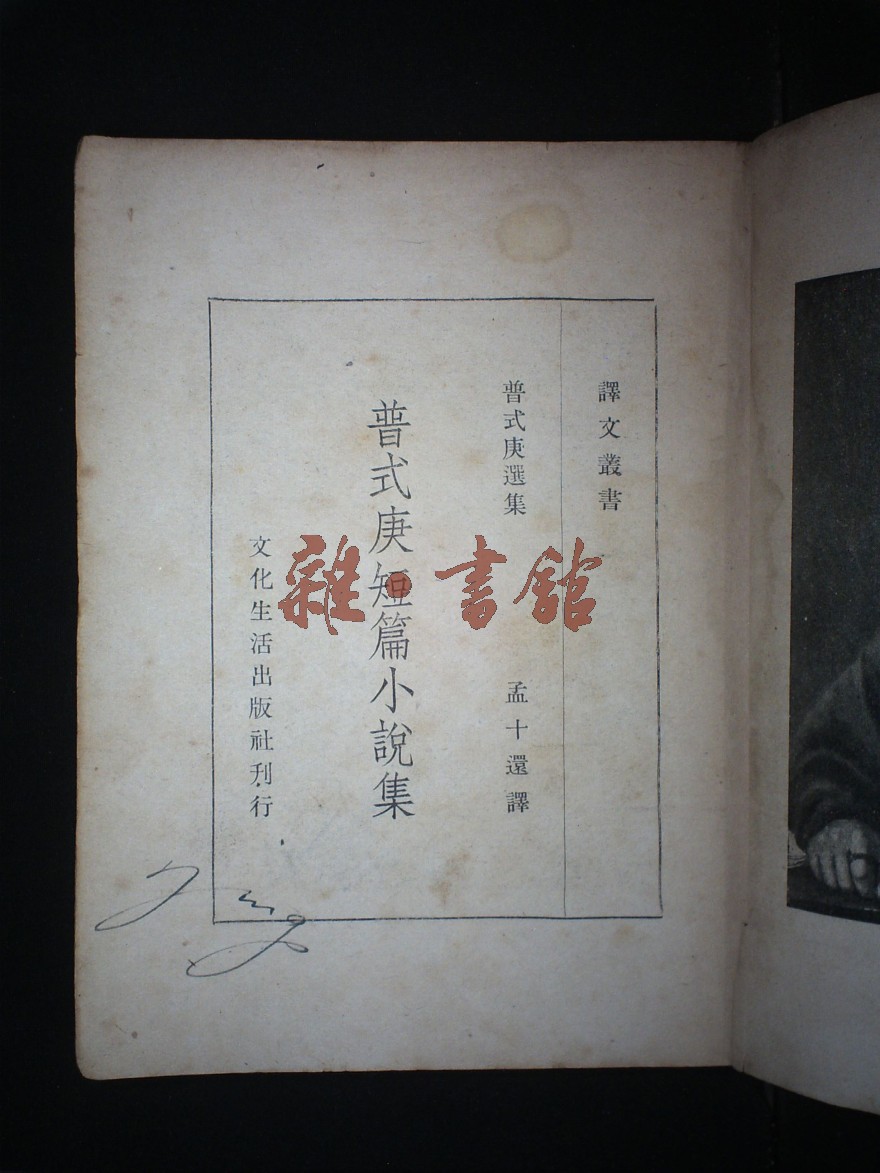 譯文叢書
普式庚選集
孟十還譯
普式庚短篇小說集
文化生活出版社刊行
雜·書館